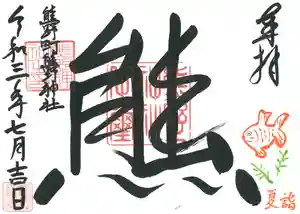 奉拝
夏詣
熊
熊野町熊野神社
令和三年七月吉日